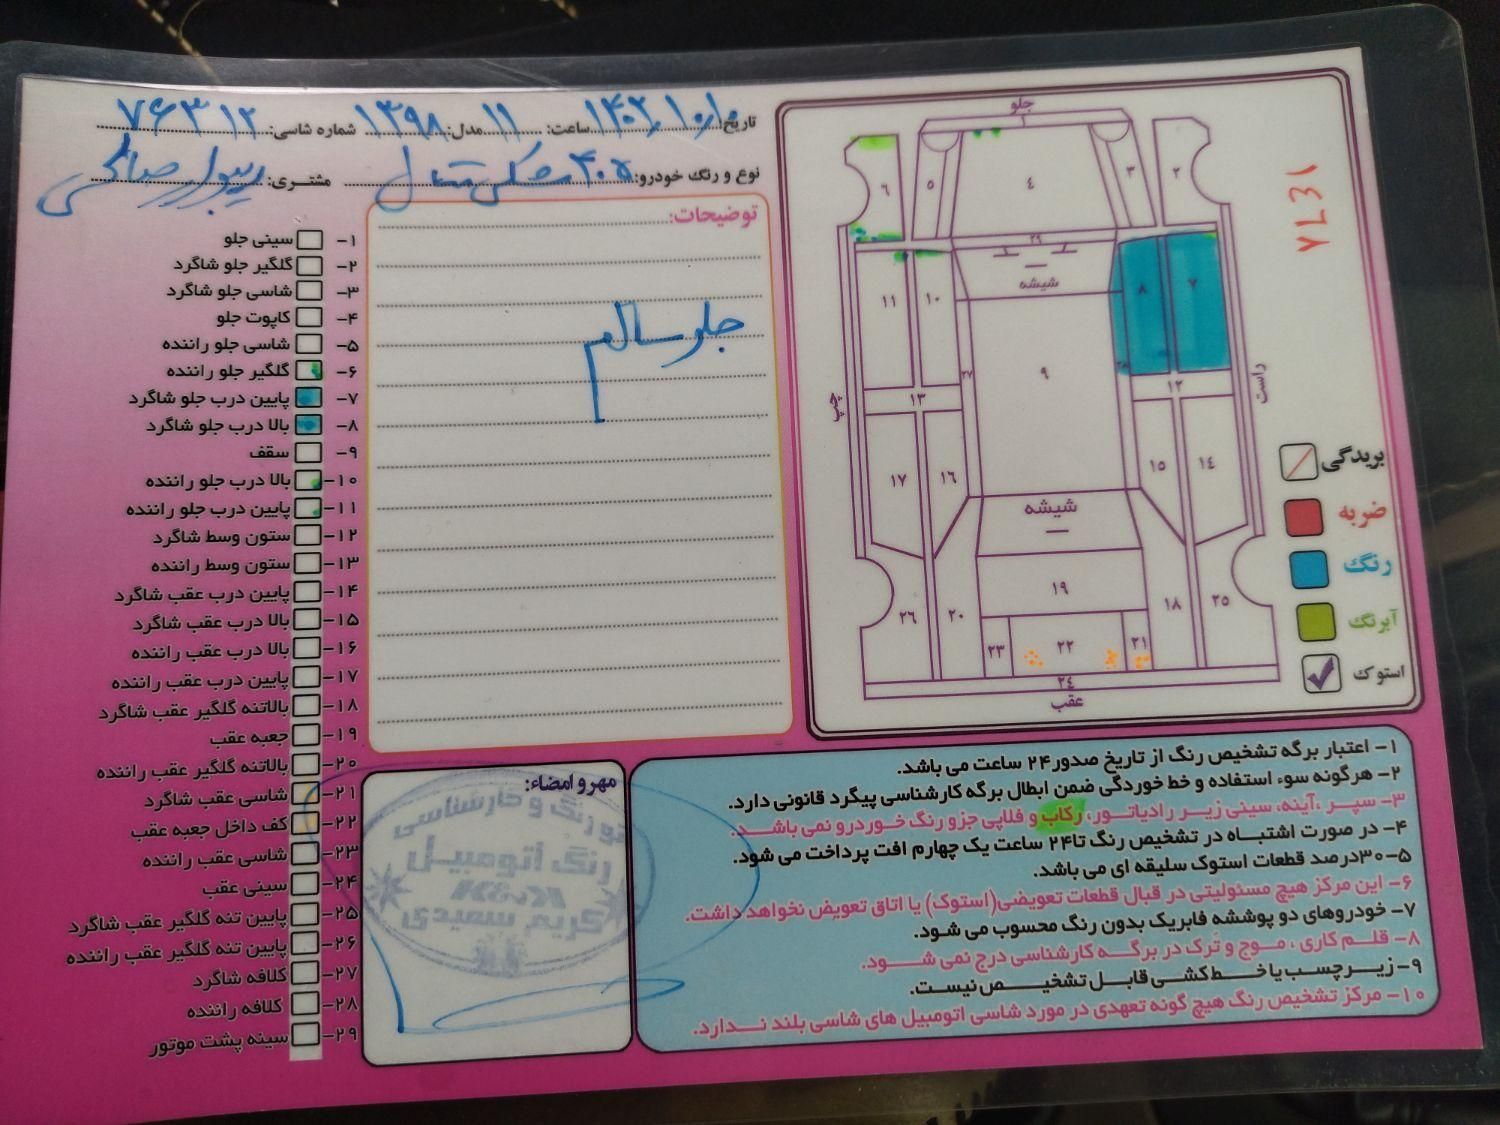 تاریخ: ۱۴۰۲/۱۰/۱۰ ساعت: ۱۱ مدل: ۱۳۹۸ شماره شاسی: ۷۶۳۱۲
نوع و رنگ خودرو: ۴۰۵ مشکی متال مشتری: ریبوار صالحی
۱- سینی جلو
۲- گلگیر جلو شاگرد
۳- شاسی جلو شاگرد
۴- کاپوت جلو
۵- شاسی جلو راننده
۶- گلگیر جلو راننده
۷- پایین درب جلو شاگرد
۸- بالا درب جلو شاگرد
۹- سقف
۱۰- بالا درب جلو راننده
۱۱- پایین درب جلو راننده
۱۲- ستون وسط شاگرد
۱۳- ستون وسط راننده
۱۴- پایین درب عقب شاگرد
۱۵- بالا درب عقب شاگرد
۱۶- بالا درب عقب راننده
۱۷- پایین درب عقب راننده
۱۸- بالاتنه گلگیر عقب شاگرد
۱۹- جعبه عقب
۲۰- بالاتنه گلگیر عقب راننده
۲۱- شاسی عقب شاگرد
۲۲- کف داخل جعبه عقب
۲۳- شاسی عقب راننده
۲۴- سینی عقب
۲۵- پایین تنه گلگیر عقب شاگرد
۲۶- پایین تنه گلگیر عقب راننده
۲۷- کلافه شاگرد
۲۸- کلافه راننده
۲۹- سینه پشت موتور
توضیحات:
جلو سالم
مهر و امضاء:
رنگ و کارشناسی
رنگ اتومبیل
کریم سعیدی
جلو
۱
۲
۳
۴
۵
۶
۲۹
شیشه
۷
۸
۱۰
۱۱
۹
۲۷
۲۸
راست
چپ
۱۲
۱۳
۱۴
۱۵
۱۶
۱۷
شیشه
۱۹
۱۸
۲۵
۲۰
۲۶
۲۱
۲۲
۲۳
۲۴
عقب
۷۶۳۱
بریدگی
ضربه
رنگ
آبرنگ
استوک
۱- اعتبار برگه تشخیص رنگ از تاریخ صدور ۲۴ ساعت می باشد.
۲- هرگونه سوء استفاده و خط خوردگی ضمن ابطال برگه کارشناسی پیگرد قانونی دارد.
۳- سپر، آینه، سینی زیر رادیاتور، رکاب و فلاپی جزو رنگ خودرو نمی باشد.
۴- در صورت اشتباه در تشخیص رنگ تا ۲۴ ساعت یک چهارم افت پرداخت می شود.
۵- ۳۰درصد قطعات استوک سلیقه ای می باشد.
۶- این مرکز هیچ مسئولیتی در قبال قطعات تعویضی(استوک) یا اتاق تعویض نخواهد داشت.
۷- خودروهای دو پوششه فابریک بدون رنگ محسوب می شود.
۸- قلم کاری ، موج و ترک در برگه کارشناسی درج نمی شود.
۹- زیر چسب یا خط کشی قابل تشخیص نیست.
۱۰- مرکز تشخیص رنگ هیچ گونه تعهدی در مورد شاسی اتومبیل های شاسی بلند ندارد.